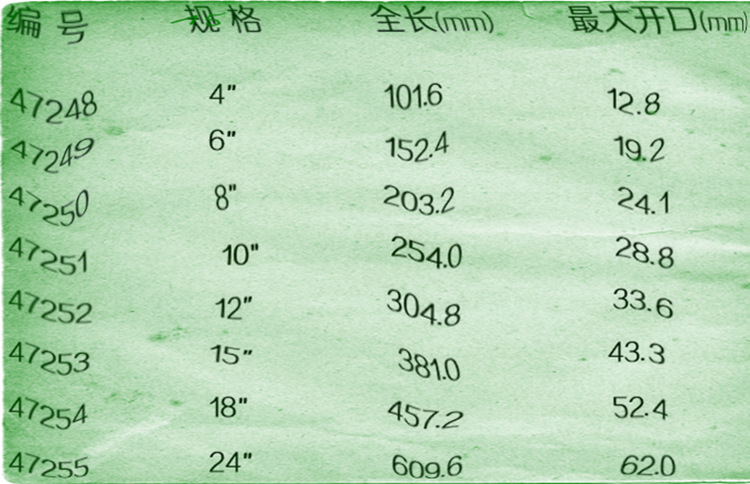 编号 规格 全长(mm) 最大开口(mm)
47248 4" 101.6 12.8
47249 6" 152.4 19.2
47250 8" 203.2 24.1
47251 10" 254.0 28.8
47252 12" 304.8 33.6
47253 15" 381.0 43.3
47254 18" 457.2 52.4
47255 24" 609.6 62.0